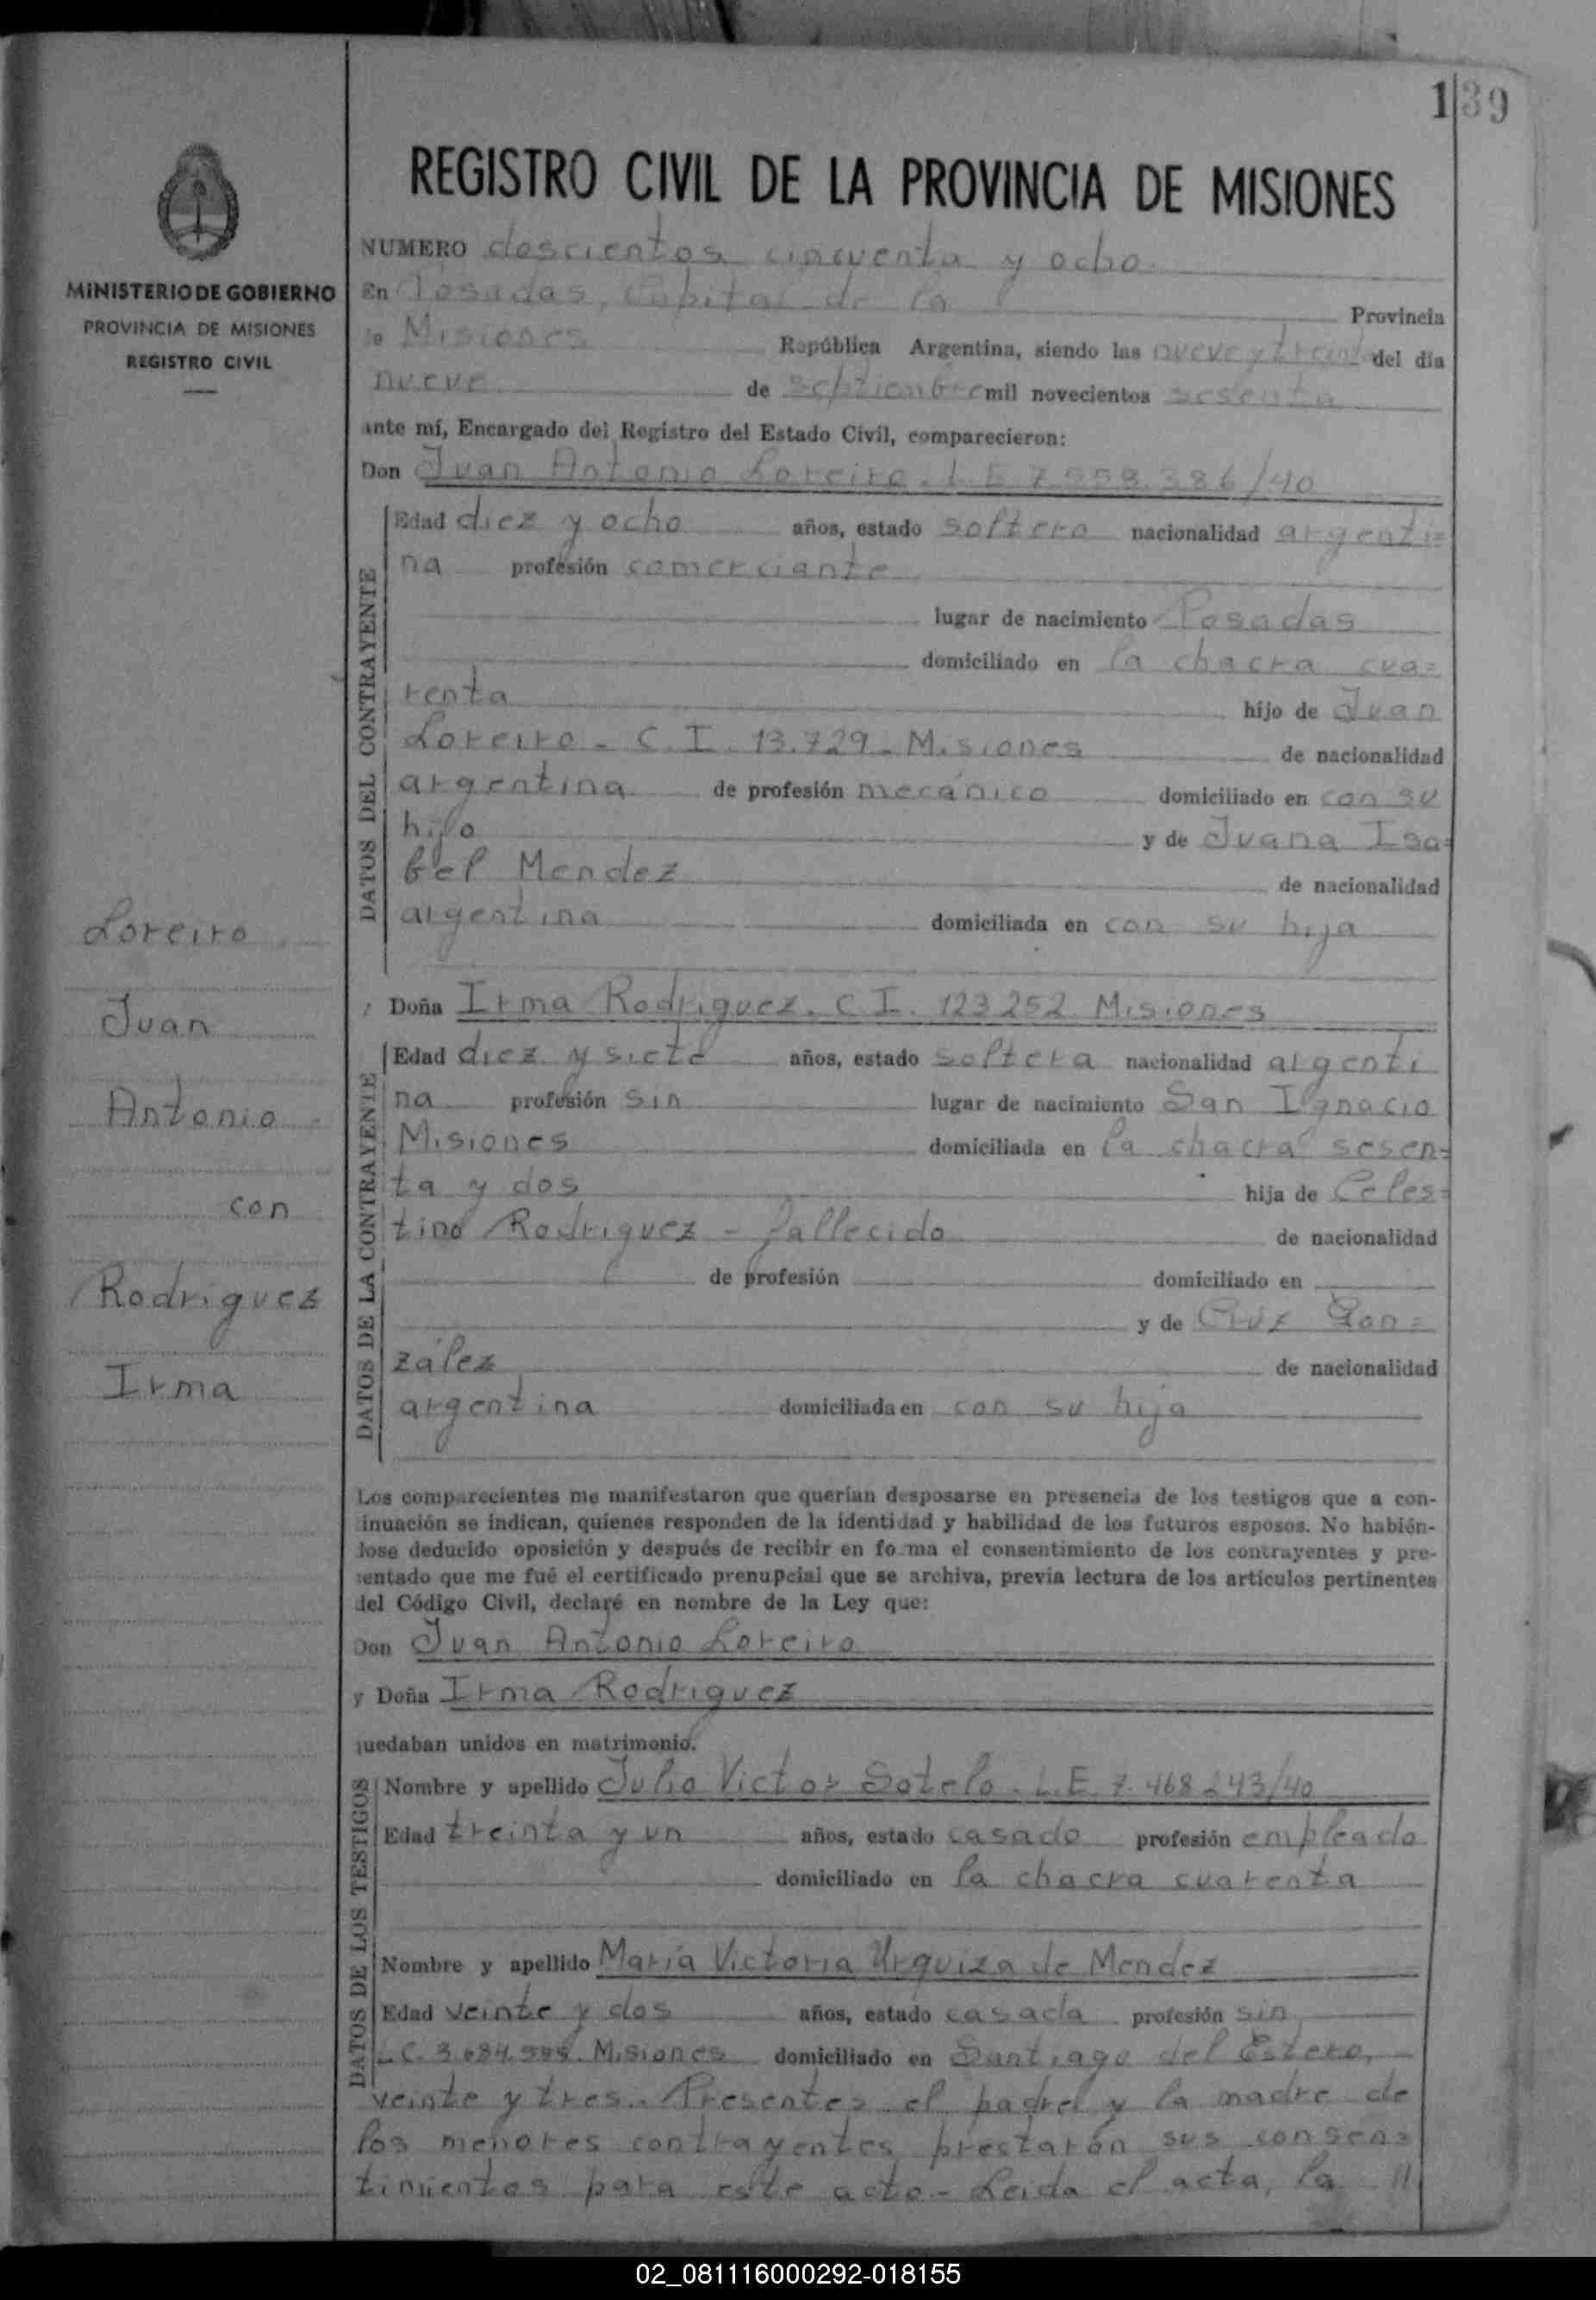 139
REGISTRO CIVIL DE LA PROVINCIA DE MISIONES
MINISTERIO DE GOBIERNO
PROVINCIA DE MISIONES
REGISTRO CIVIL
NUMERO doscientos cincuenta y ocho
En Posadas, Capital de la Provincia
de Misiones República Argentina, siendo las nueve y treinta del día
nueve de septiembre mil novecientos sesenta
ante mí, Encargado del Registro del Estado Civil, comparecieron:
Don Juan Antonio Loreiro. L E 7.558.386/40
DATOS DEL CONTRAYENTE
Edad diez y ocho años, estado soltero nacionalidad argenti=
na profesión comerciante
lugar de nacimiento Posadas
domiciliado en la chacra cua=
renta hijo de Juan
Loreiro - C. I. 13.729 - Misiones de nacionalidad
argentina de profesión mecánico domiciliado en con su
hijo y de Juana Isa=
bel Mendez de nacionalidad
argentina domiciliada en con su hija
Loreiro
Juan
Antonio
con
Rodriguez
Irma
y Doña Irma Rodriguez. C I. 123.252 Misiones
DATOS DE LA CONTRAYENTE
Edad diez y siete años, estado soltera nacionalidad argenti
na profesión sin lugar de nacimiento San Ignacio
Misiones domiciliada en la chacra sesen=
ta y dos hija de Celes=
tino Rodriguez - fallecido de nacionalidad
de profesión domiciliado en
y de Cruz Gon=
zález de nacionalidad
argentina domiciliada en con su hija
Los comparecientes me manifestaron que querían desposarse en presencia de los testigos que a con-
tinuación se indican, quienes responden de la identidad y habilidad de los futuros esposos. No habién-
dose deducido oposición y después de recibir en forma el consentimiento de los contrayentes y pre-
sentado que me fué el certificado prenupcial que se archiva, previa lectura de los artículos pertinentes
del Código Civil, declaré en nombre de la Ley que:
Don Juan Antonio Loreiro
y Doña Irma Rodriguez
quedaban unidos en matrimonio.
DATOS DE LOS TESTIGOS
Nombre y apellido Julio Victor Sotelo. L.E. 7.468.243/40
Edad treinta y un años, estado casado profesión empleado
domiciliado en la chacra cuarenta
Nombre y apellido María Victoria Urquiza de Mendez
Edad veinte y dos años, estado casada profesión sin
L.C. Misiones domiciliado en Santiago del Estero,
veinte y tres. Presentes el padre y la madre de
los menores contrayentes prestarón sus consen=
timientos para este acto - Leida el acta, la //
02_081116000292-018155